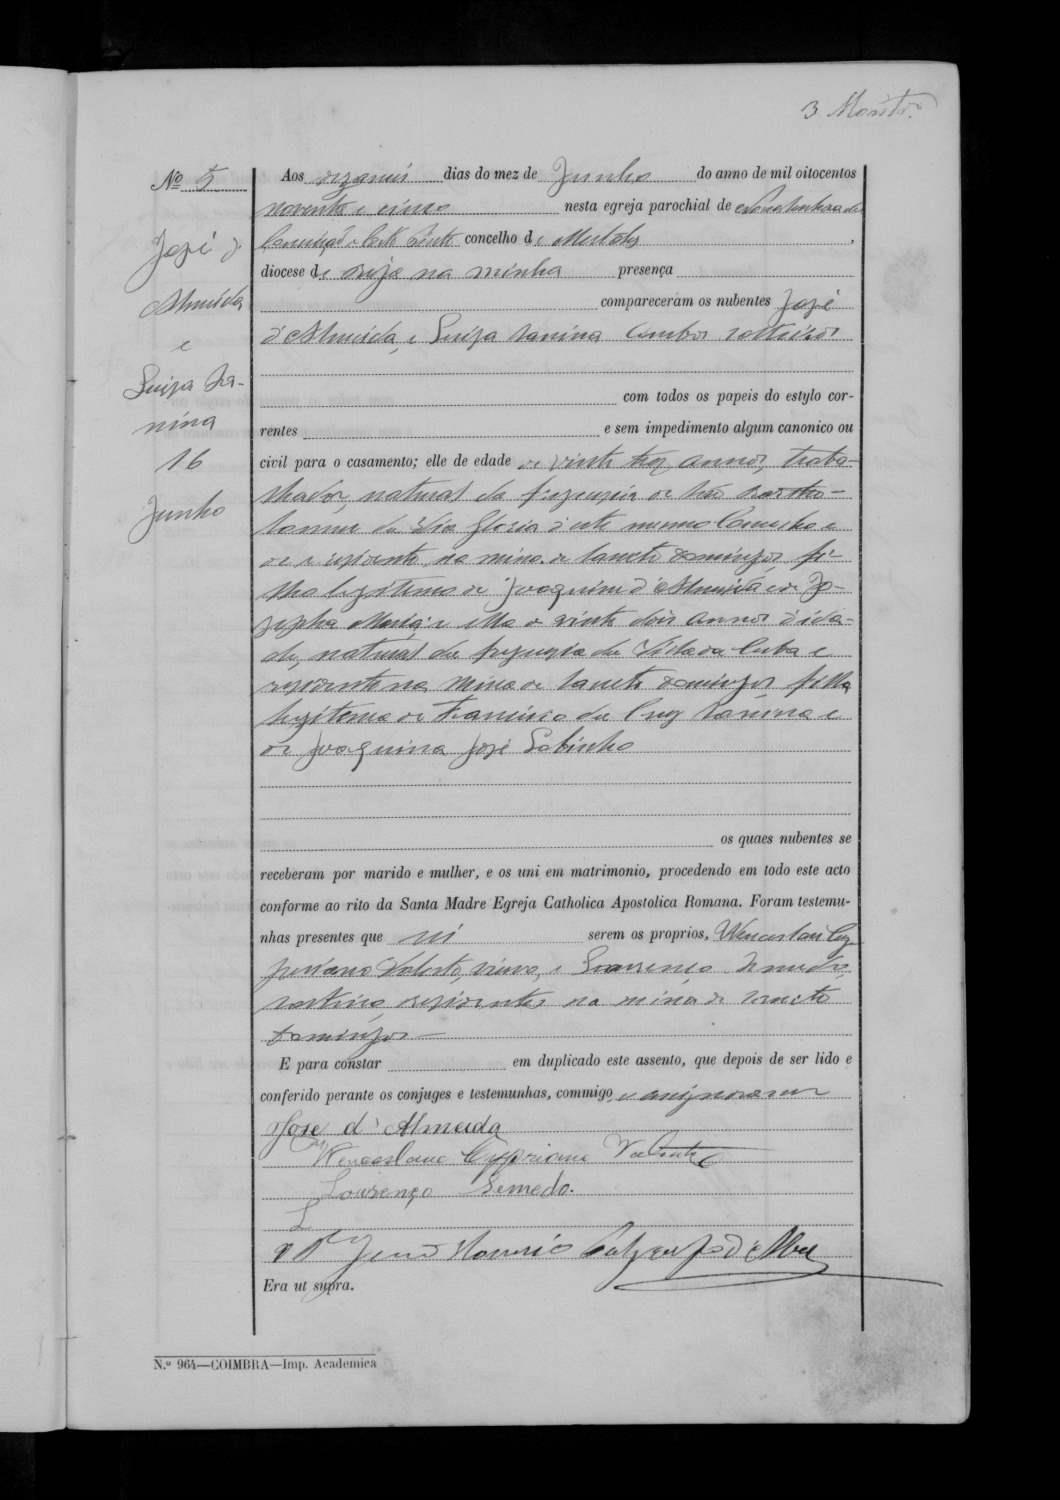 3 Monteiro
Nº 5
José d'
Almeida
e
Luiza Na-
nina
16
Junho
Aos dezaseis dias do mez de Junho do anno de mil oitocentos
noventa e cinco nesta egreja parochial de Nossa Senhora da
Conceição concelho de Mertola,
diocese de Beja na minha presença
compareceram os nubentes José
d'Almeida, e Luiza Nanina ambos solteiros
com todos os papeis do estylo cor-
rentes e sem impedimento algum canonico ou
civil para o casamento; elle de edade de vinte trez annos, traba-
lhador, natural da freguezia de São Bartho-
lomeu da Via Gloria d'este mesmo Concelho e
de residente na mina de Sancto Domingos fi-
lho legitimo de Joaquim d'Almeida e de Jo-
zepha Maria; e ella de vinte dois annos d'ida-
de, natural da freguezia da Villa da Cuba e
rezidente na mina de Sancto Domingos filha
legitima de Francisco da Cruz Nanina e
de Joaquina José Sabinho
os quaes nubentes se
receberam por marido e mulher, e os uni em matrimonio, procedendo em todo este acto
conforme ao rito da Santa Madre Egreja Catholica Apostolica Romana. Foram testemu-
nhas presentes que sei serem os proprios, Wenceslau Cy-
priano Valente, viuvo, e Lourenço Semedo,
solteiro, rezidentes na mina de Sancto
Domingos
E para constar em duplicado este assento, que depois de ser lido e
conferido perante os conjuges e testemunhas, commigo assignaram
Jose d'Almeida
Wenceslau Cypriano Valente
Lourenço Semedo.
Era ut supra.
N.º 964—COIMBRA—Imp. Academica